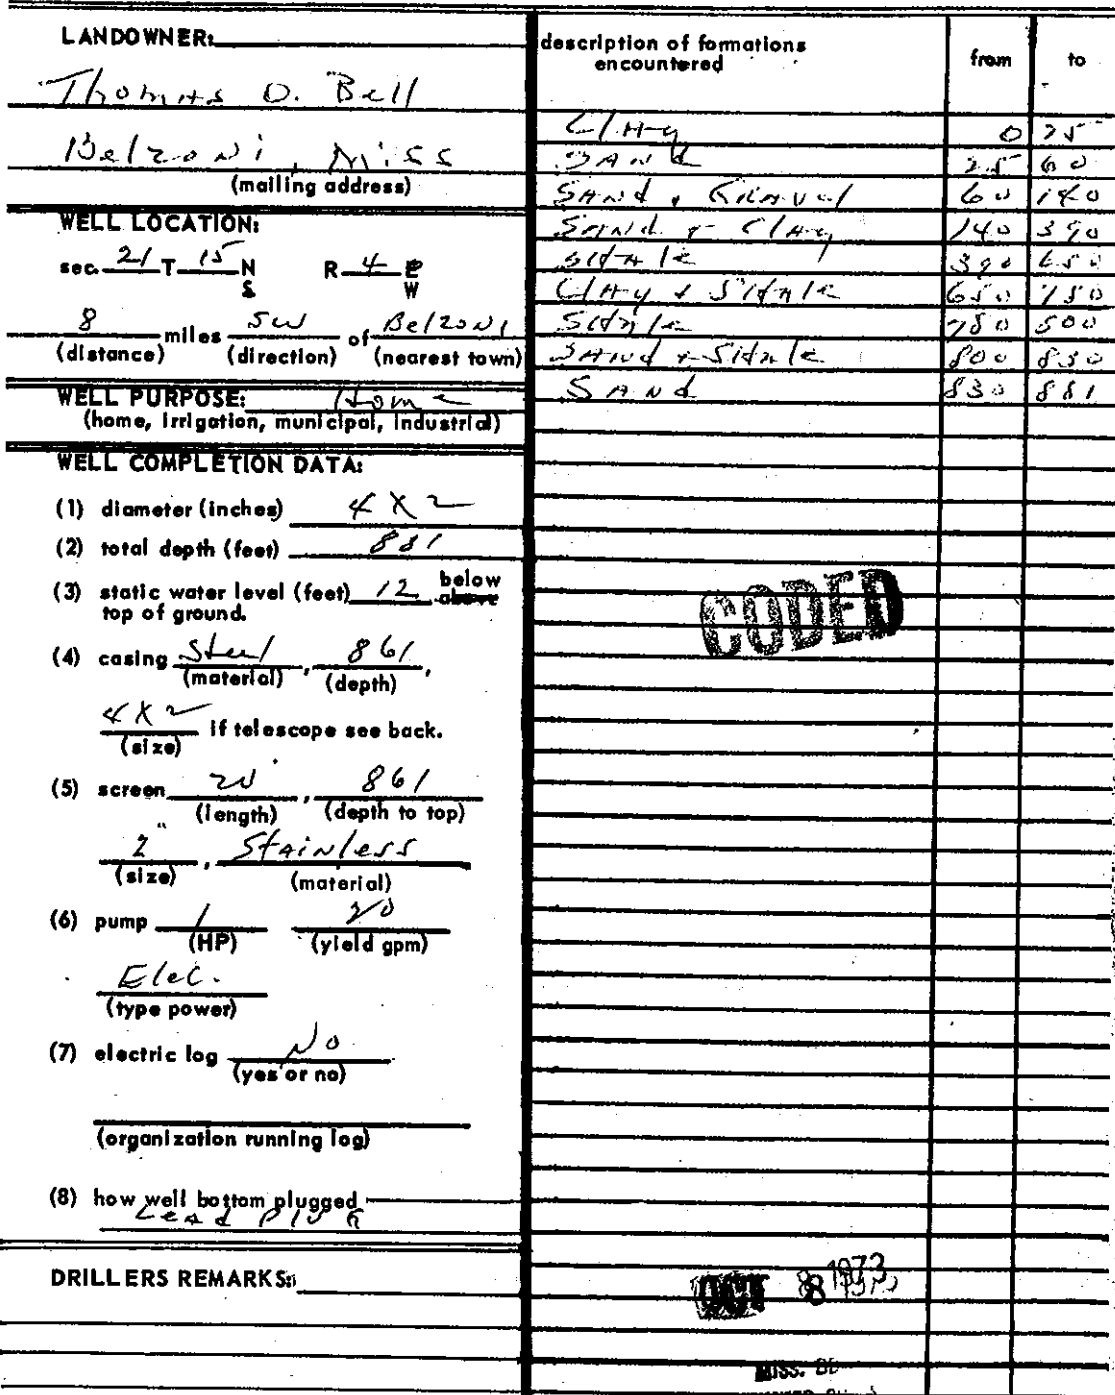 LANDOWNER:
Thomas D. Bell
Belzoni, Miss
(mailing address)
WELL LOCATION:
sec. 21 T 15 N R 4 E
S W
8 miles SW of Belzoni
(distance) (direction) (nearest town)
WELL PURPOSE: Home
(home, irrigation, municipal, industrial)
WELL COMPLETION DATA:
(1) diameter (inches) 4 X 2
(2) total depth (feet) 881
(3) static water level (feet) 12 below above
top of ground.
(4) casing Steel, 861,
(material) (depth)
4 X 2 if telescope see back.
(size)
(5) screen 20', 861
(length) (depth to top)
2", Stainless
(size) (material)
(6) pump 1 20
(HP) (yield gpm)
Elec.
(type power)
(7) electric log No
(yes or no)
(organization running log)
(8) how well bottom plugged
Lead Plug
DRILLERS REMARKS:
description of formations encountered from to
Clay 0 25
Sand 25 60
Sand & Gravel 60 140
Sand & Clay 140 390
Shale 390 650
Clay & Shale 650 780
Shale 780 800
Sand & Shale 800 830
Sand 830 881
CODED
OCT 8 1973
MISS. BD